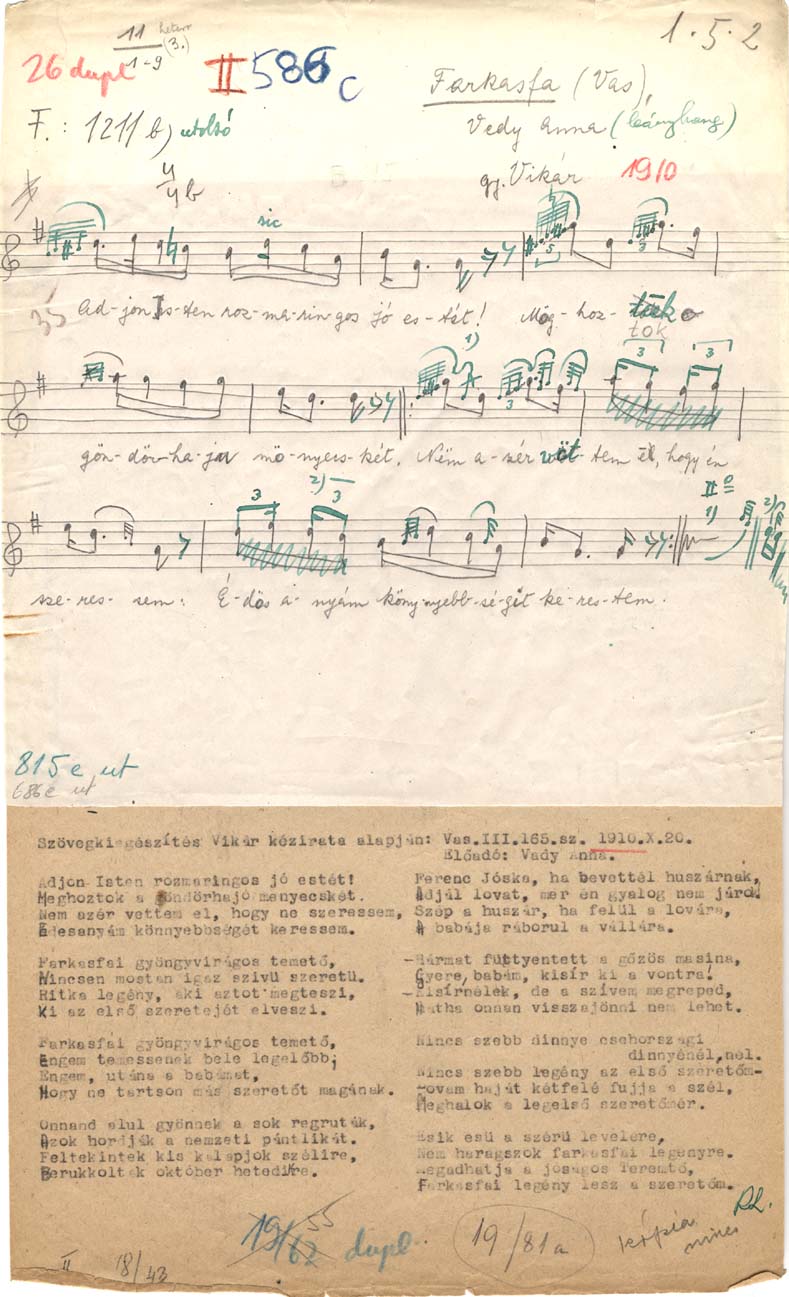 11 heterr
1-9 (3.)
1.5.2
26 dupl II 586 c
Farkasfa (Vas),
F.: 1211 b) utolsó
Vedy Anna (leányhang)
gy. Vikár 1910
sic
5 3
Ad-jon Is-ten roz-ma-rin-gos jó es-tét! Mög-hoz-tok a
1)
3 3 3
gön-dör-ha-ju mö-nyecs-két. Nëm a-zér vöt-tem el, hogy én
3 2) 3
II⁰ =
1) 2)
sze-res-sem: É-dös a-nyám köny-nyebb-sé-git ke-res-tem.
815 e ut
686 e ut
Szövegkiegészítés Vikár kézirata alapján: Vas.III.165.sz. 1910.X.20.
Előadó: Vady Anna.
Adjon Isten rozmaringos jó estét!
Meghoztok a göndörhajó menyecskét.
Nem azér vettem el, hogy ne szeressem,
Édesanyám könnyebbségét keressem.
Farkasfai gyöngyvirágos temető,
Nincsen mostan igaz szivü szeretü.
Ritka legény, aki aztot megteszi,
Ki az első szeretejét elveszi.
Farkasfai gyöngyvirágos temető,
Engem temessenek bele legelőbb;
Engem, utána a babámat,
Hogy ne tartson más szeretőt magának.
Onnand alul gyönnek a sok regruták,
Azok hordják a nemzeti pántlikát.
Feltekintek kis kalapjok szélire,
Berukkoltak október hetedire.
Ferenc Jóska, ha bevettél huszárnak,
Adjál lovat, mer én gyalog nem járok.
Szép a huszár, ha felül a lovára,
A babája ráborul a vállára.
-Hármat füttyentett a gőzös masina,
Gyere, babám, kisír ki a vontra!
-Kisírnélek, de a szívem megreped,
Hátha onnan visszajönni nem lehet.
Nincs szebb dinnye csehországi
dinnyénél,nel.
Nincs szebb legény az első szeretőm-
rovam haját kétfelé fujja a szél,
Meghalok a legelső szeretőmér.
Esik esü a szérü levelére,
Nem haragszok farkasfai legényre.
Megadhatja a jóságos Teremtő,
Farkasfai legény lesz a szeretőm.
R.L.
19/62 dupl.
19/81a
kópia
nincs
II 18/43